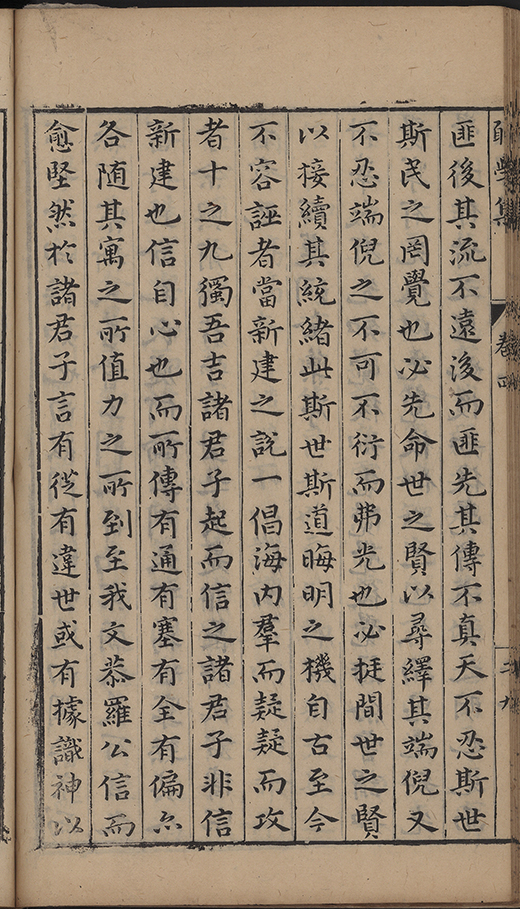 匪後其流不遠後而匪先其傳不真天不忍斯世
斯民之罔覺也必先命世之賢以尋繹其端倪又
不忍端倪之不可不衍而弗光也必挺間世之賢
以接續其統緒此斯世斯道晦明之機自古至今
不容誣者當新建之説一倡海内羣而疑疑而攻
者十之九獨吾吉諸君子起而信之諸君子非信
新建也信自心也而所傳有通有塞有全有偏亦
各随其寓之所值力之所到至我文恭羅公信而
愈堅然於諸君子言有從有違世或有據識神以
學集
卷四
二九